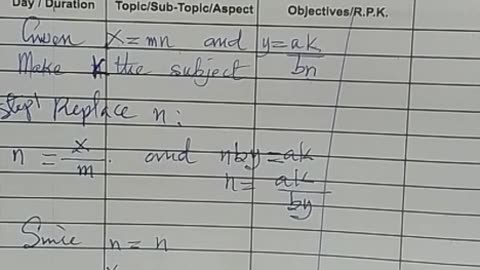 Day / Duration Topic/Sub-Topic/Aspect Objectives/R.P.K.
Given x = mn and y = ak/bn
Make k the subject
Step 1 Replace n:
n = x/m . and nby = ak
n = ak/by
Since n = n